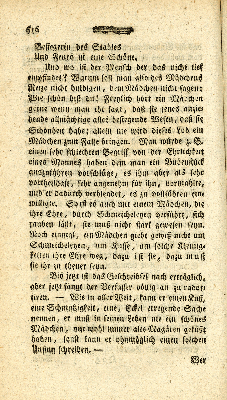 616
Besiegerin des Stabtes
Und Feuers ist eine Schöne.
Und wo ist der Mensch der das nicht tief
empfindet? Warum soll man also des Mädchens
Reize nicht huldigen, dem Mädchen nicht sagen:
Wie schön bist du! Freylich hört ein Mädchen
gerne wenn man ihr sagt, daß sie jenes anzie-
hende allmächtige alles besiegende Wesen, daß sie
Schönheit habe; allein nie wird dieses Lob ein
Mädchen zum Falle bringen. Man würde z. B.
einen sehr schlechten Begriff von der Ehrlichkeit
eines Mannes haben dem man ein Bubenstück
auszuführen vorschlüge, es ihm aber als sehr
vortheilhaft, sehr angenehm für ihn, vormahlte,
und er dadurch verblendet, es zu vollführen ein-
willigte. So ist es auch mit einem Mädchen, die
ihre Ehre, durch Schmeicheleyen verführt, sich
rauben läßt, sie muß nicht stark gewesen seyn.
Noch einmal, ein Mädchen gebe gewiß nicht um
Schmeicheleyen, um Küsse, um solche Kleinig-
keiten ihre Ehre weg, dazu ist sie, dazu muß
sie ihr zu theuer seyn.
Bis jetzt ist das Geschreibsel noch erträglich,
aber jetzt fängt der Verfasser völlig an zu rada-
tiren. — Wie in aller Welt, kann er einen Kuß,
eine Schmutzigkeit, eine, Ekel erregende Sache
nennen, er muß in seinem Leben nie ein schönes
Mädchen, nur wohl immer alte Magären geküßt
haben, sonst kann er ohnmöglich einen solchen
Unsinn schreiben. —
Wer